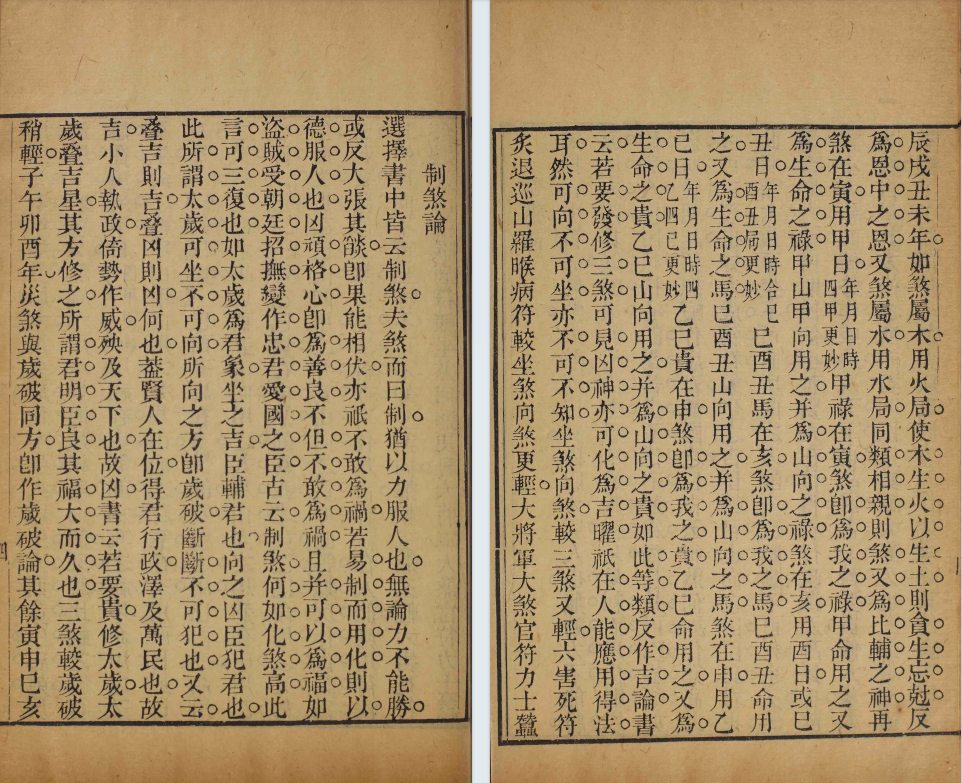 制煞論
選擇書中皆云制煞夫煞而曰制猶以力服人也無論力不能勝
或反大張其燄卽果能相伏亦祇不敢爲禍若易制而用化則以
德服人也凶頑格心卽爲善良不但不敢爲禍且并可以爲福如
盜賊受朝廷招撫變作忠君愛國之臣古云制煞何如化煞高此
言可三復也如太歲爲君象坐之吉臣輔君也向之凶臣犯君也
此所謂太歲可坐不可向所向之方卽歲破斷斷不可犯也又云
叠吉則吉叠凶則凶何也蓋賢人在位得君行政澤及萬民也故
吉小人執政倚勢作威殃及天下也故凶書云若要貴修太歲太
歲叠吉星其方修之所謂君明臣良其福大而久也三煞較歲破
稍輕子午卯酉年災煞與歲破同方卽作歲破論其餘寅申巳亥
四
辰戌丑未年如煞屬木用火局使木生火以生土則貪生忘尅反
爲恩中之恩又煞屬水用水局同類相親則煞又爲比輔之神再
煞在寅用甲日年月日時四甲更妙甲祿在寅煞卽爲我之祿甲命用之又
爲生命之祿甲山甲向用之并爲山向之祿煞在亥用酉日或巳
丑日年月日時合巳酉丑局更妙巳酉丑馬在亥煞卽爲我之馬巳酉丑命用
之又爲生命之馬巳酉丑山向用之并爲山向之馬煞在申用乙
巳日年月日時四乙四巳更妙乙巳貴在申煞卽爲我之貴乙巳命用之又爲
生命之貴乙巳山向用之并爲山向之貴如此等類反作吉論書
云若要發修三煞可見凶神亦可化爲吉曜祇在人能應用得法
耳然可向不可坐亦不可不知坐煞向煞較三煞又輕六害死符
炙退巡山羅㬋病符較坐煞向煞更輕大將軍大煞官符力士蠶